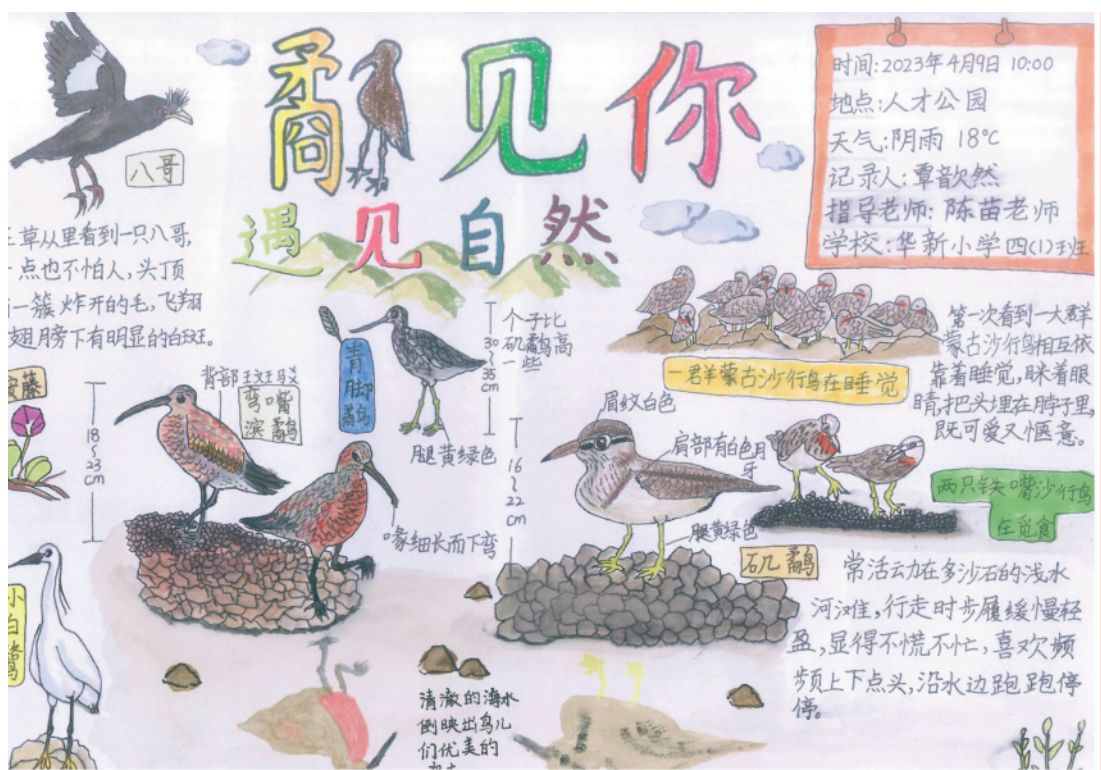 矞见你
遇见自然
时间:2023年4月9日 10:00
地点:人才公园
天气:阴雨 18°C
记录人:覃歆然
指导老师:陈苗老师
学校:华新小学四(1)班
八哥
草从里看到一只八哥,
点也不怕人,头顶
一簇炸开的毛,飞翔
翅膀下有明显的白斑。
藤
18~23cm
背部斑驳
弯嘴滨鹬
青脚鹬
30~35cm
个子比
矶鹬高
一些
腿黄绿色
喙细长而下弯
一群蒙古沙行鸟在睡觉
第一次看到一大群
蒙古沙行鸟相互依
靠着睡觉,眯着眼
睛,把头埋在脖子里,
既可爱又惬意。
眉纹白色
肩部有白色月
牙
16~22cm
腿黄绿色
矶鹬
两只铁嘴沙行鸟
在觅食
常活动在多沙石的浅水
河滩,行走时步履缓慢轻
盈,显得不慌不忙,喜欢频
频上下点头,沿水边跑跑停
停。
小白鹭
清澈的海水
倒映出鸟儿
们优美的